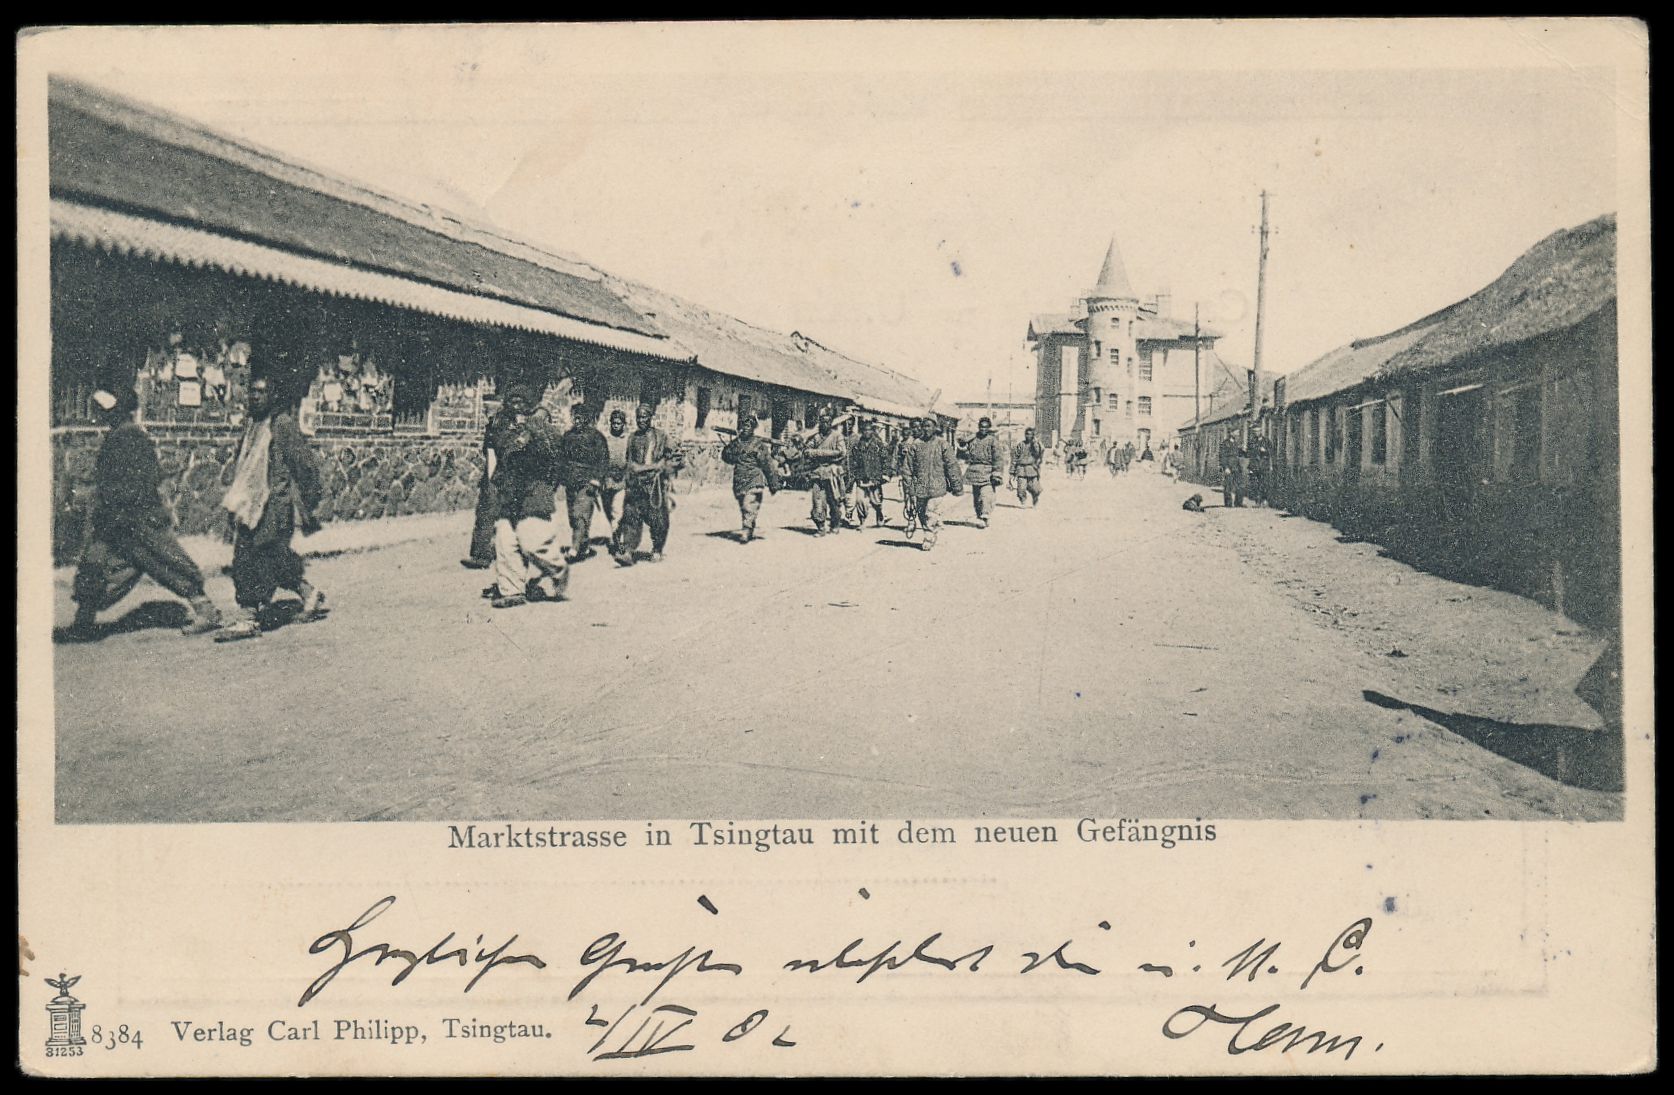 Marktstrasse in Tsingtau mit dem neuen Gefängnis
Herzlichen Grüße
8384 Verlag Carl Philipp, Tsingtau. 2/IV 02
31253